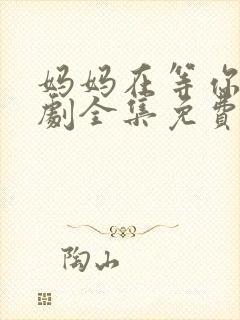 妈妈在等你
劇全集免費
陶山